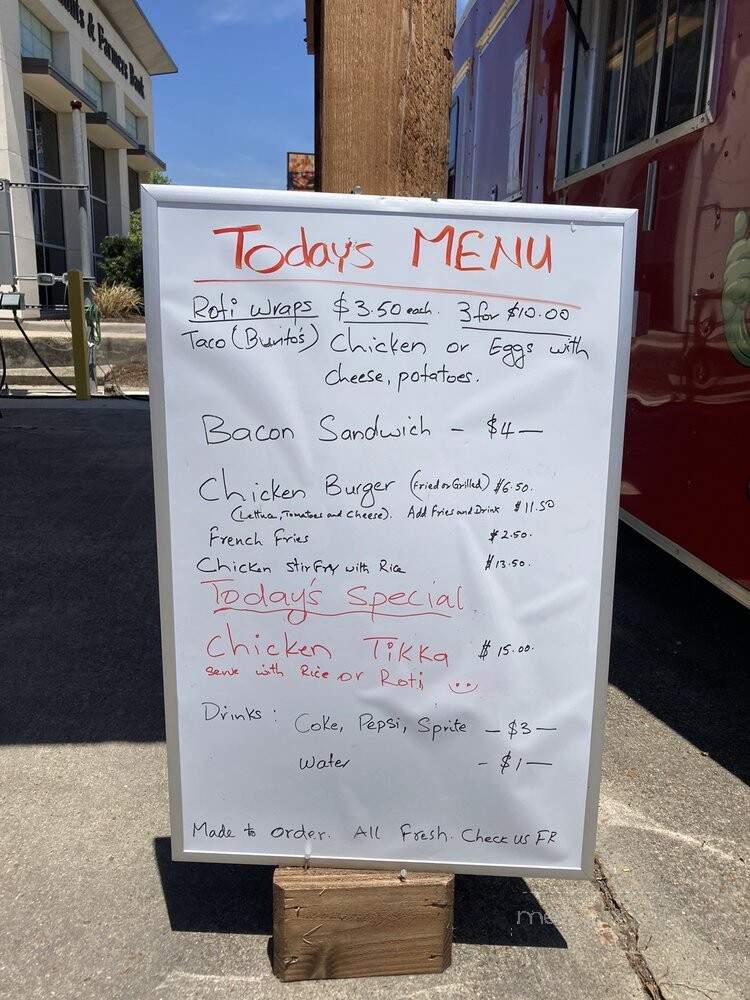 & Farmers Bank
Today's MENU
Roti wraps $3.50 each. 3 for $10.00
Taco (Burito's) Chicken or Eggs with
cheese, potatoes.
Bacon Sandwich - $4—
Chicken Burger (Fried or Grilled) $6.50.
(Lettuce, Tomatoes and Cheese). Add Fries and Drink $11.50
French Fries $2.50.
Chicken Stir Fry with Rice $13.50.
Today's Special
Chicken Tikka $15.00.
serve with Rice or Roti
Drinks: Coke, Pepsi, Sprite - $3—
Water - $1—
Made to order. All Fresh. Check us FR